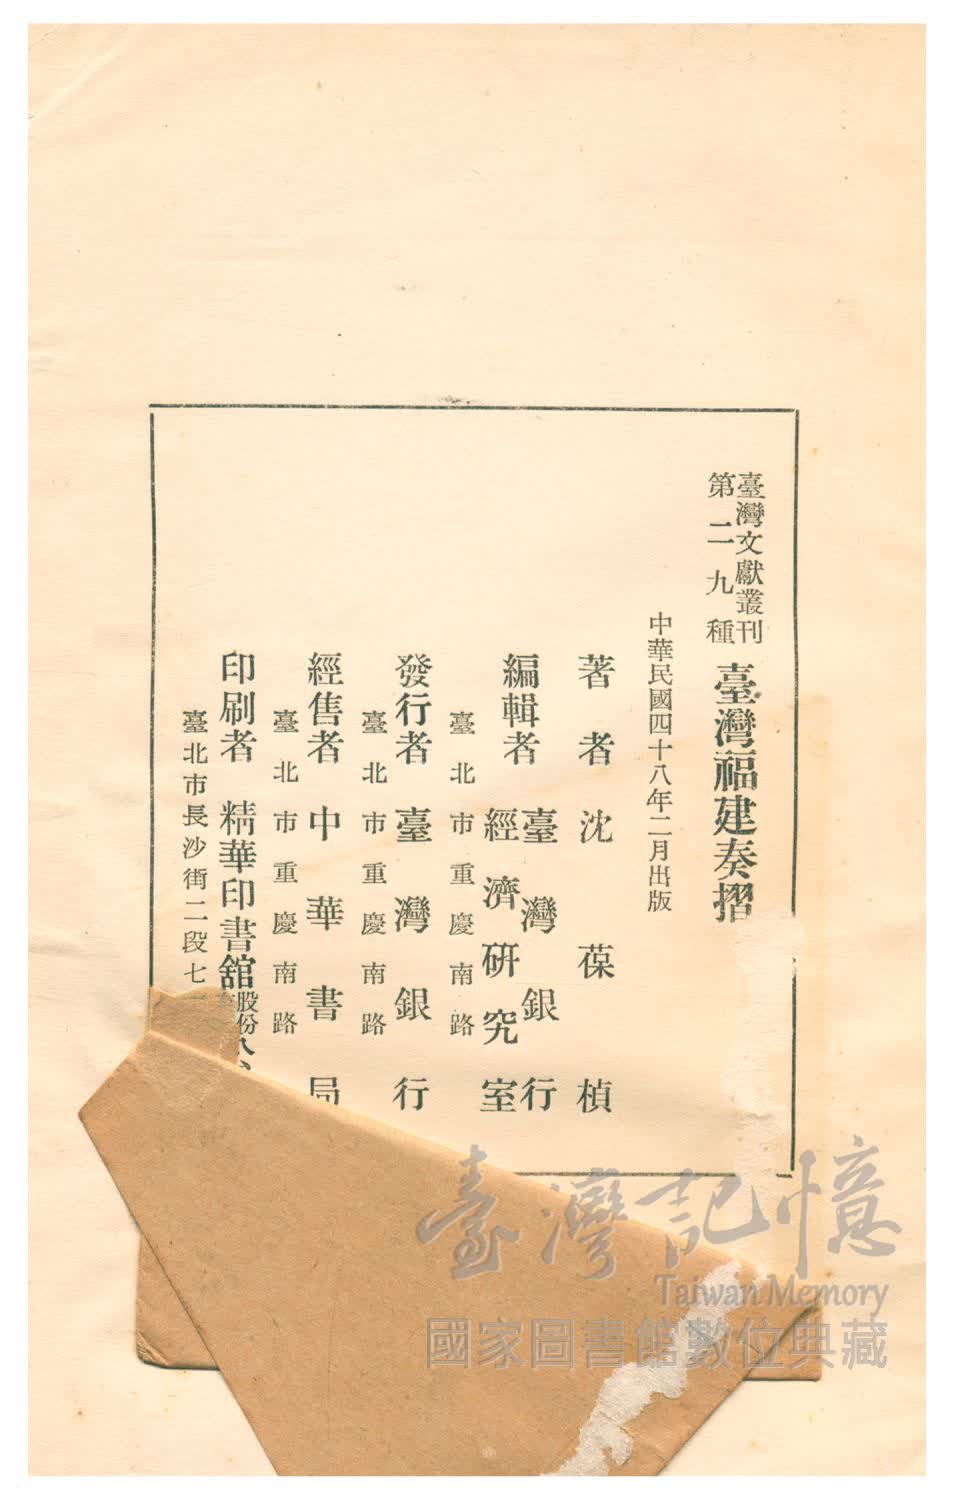 臺灣文獻叢刊
第二九種
臺灣福建奏摺
中華民國四十八年二月出版
著者 沈葆楨
編輯者 臺灣銀行
經濟研究室
臺北市重慶南路
發行者 臺灣銀行
臺北市重慶南路
經售者 中華書局
臺北市重慶南路
印刷者 精華印書舘股份
臺北市長沙街二段七
臺灣記憶
Taiwan Memory
國家圖書館數位典藏